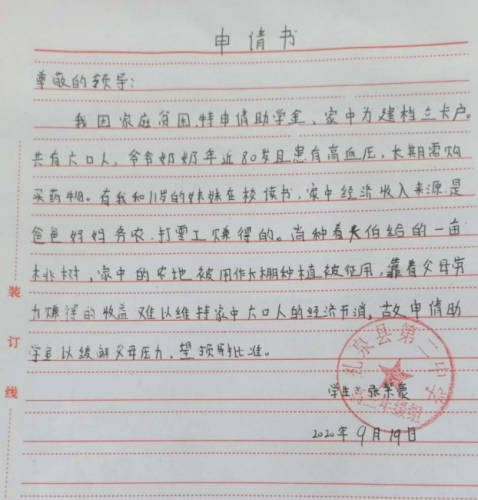 申请书
尊敬的领导:
我因家庭贫困特申请助学金、家中为建档立卡户。
共有六口人，爷爷奶奶年近80岁且患有高血压，长期需购
买药物。有我和11岁的妹妹在校读书，家中经济收入来源是
爸爸妈妈务农、打零工赚得的。尚种着大伯给的一亩
桃树，家中的农地被用作大棚种植被征用，靠着父母劳
力赚得的收益难以维持家中六口人的经济开消，故申请助
学金以缓解父母压力，望领导批准。
装
订
线
礼泉县第二中学
学生：张
2020年9月19日